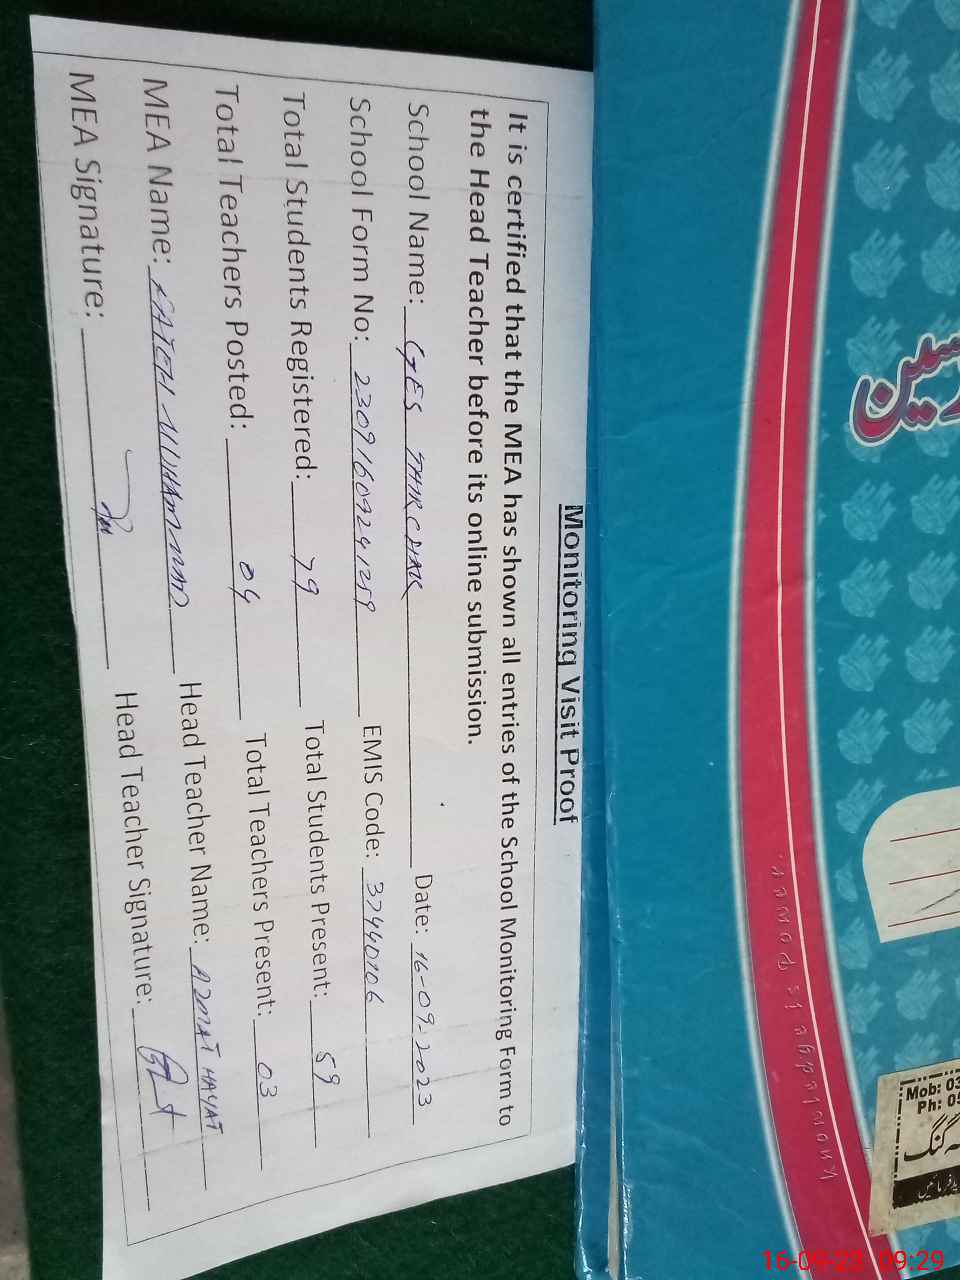 Monitoring Visit Proof
It is certified that the MEA has shown all entries of the School Monitoring Form to
the Head Teacher before its online submission.
School Name: GES Date: 16-09-2023
School Form No: 23091609241259 EMIS Code: 37440106
Total Students Registered: 79 Total Students Present: 59
Total Teachers Posted: 04 Total Teachers Present: 03
MEA Name: FATEH MUHAMMAD Head Teacher Name: AZMAT HAYAT
MEA Signature: Head Teacher Signature:
Knowledge is power
Mob: 03
Ph: 05
16-09-23 09:29